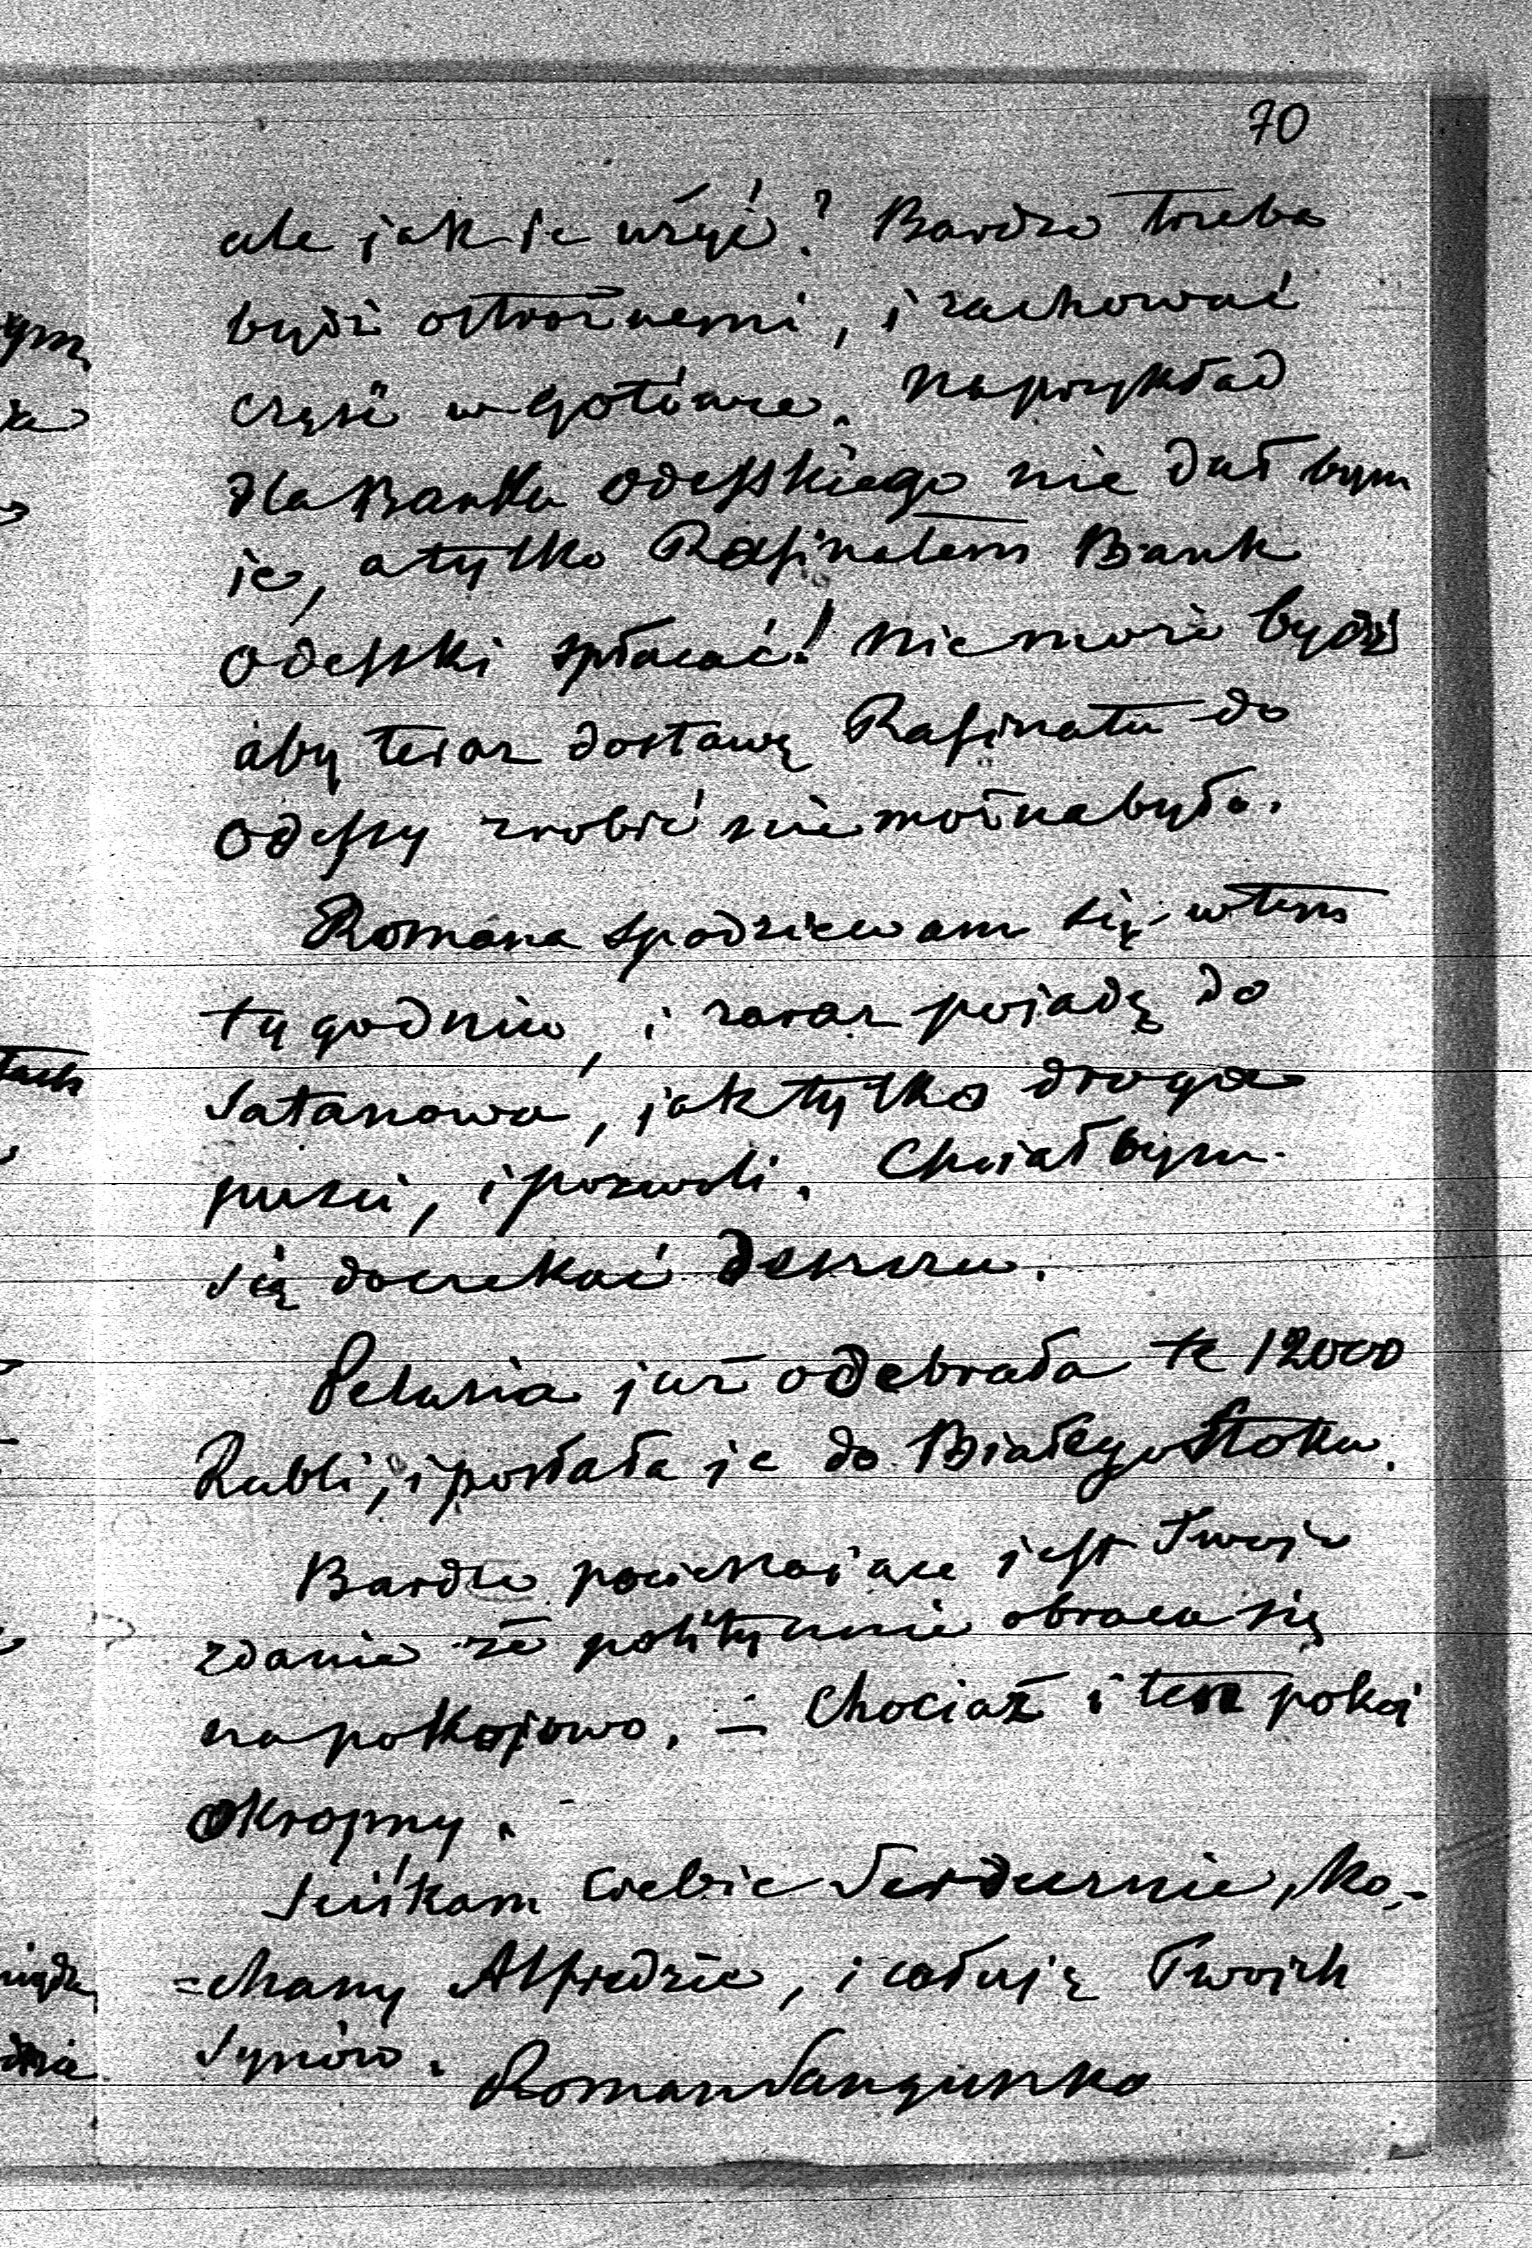 70
ale jak je użyć? Bardzo trzeba
bydź ostrożnemi, i zachować
część w gotówce. Naprzykład
dla Banku Odesskiego nie dał bym
ie, a tylko Rafinatem Bank
Odesski spłacać! Nie może bydź
aby teraz dostawę Rafinatu do
Odessy zrobić nie można było.
Romana spodziewam się w tem
tygodniu, i zaraz pojadę do
Satanowa, jak tylko droga
puści, i pozwoli. Chciał bym
się doczekać deszczu.
Pelusia już odebrała te 12000
Rubli, i posłała je do Białego Stoku.
Bardzo pocieszające jest Twoje
zdanie że politycznie obraca się
na pokojowo. – Chociaż i ten pokój
okropny.
Sciśkam Ciebie Serdecznie, ko-
=chany Alfredzie, i całuję Twoich
Synów. Roman Sanguszko